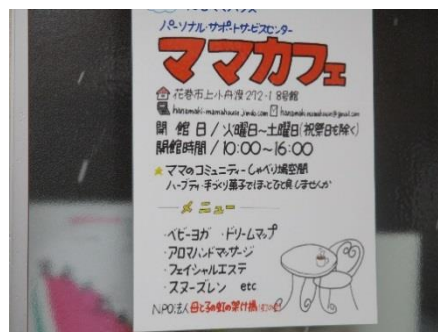 パーソナル・サポートサービスセンター
ママカフェ
花巻市上小舟渡272-1 8号館
hanamaki-mamahouse.jimdo.com
開館日/火曜日〜土曜日(祝祭日を除く)
開館時間/10:00〜16:00
ママのコミュニティー しゃべり場空間
ハーブティ・手づくり菓子でほっとひと息しませんか
メニュー
・ベビーヨガ ・ドリームマップ
・アロマハンドマッサージ
・フェイシャルエステ
・スヌーズレン etc
NPO法人 母と子の虹の架け橋